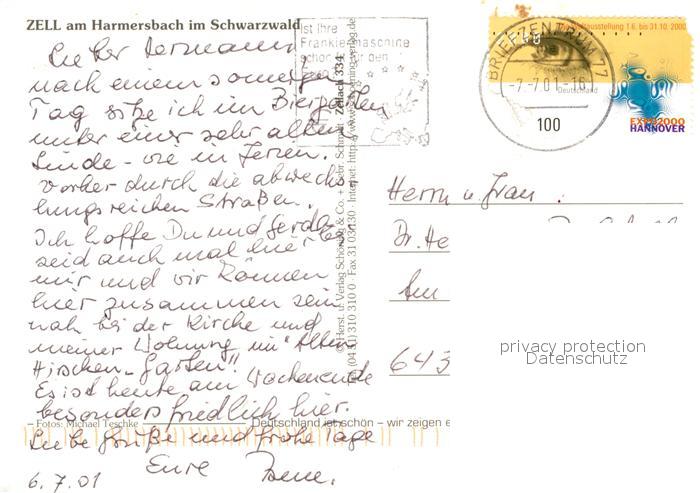 ZELL am Harmersbach im Schwarzwald
Lieber Hermann
nach einem sonnigen
Tag sitze ich im Biergarten
unter einer sehr alten
Linde - wie in Ferien.
Vorher durch die abwechs-
lungsreichen Straßen.
Ich hoffe Du und Gerda
seid auch mal hier bei
mir und wir können
hier zusammen sein
nah bei der Kirche und
meiner Wohnung im "Alten
Hirschen-Garten"!
Es ist heute am Wochenende
besonders friedlich hier.
Liebe Grüße und frohe Tage
Eure
6.7.01
– Fotos: Michael Teschke
Deutschland ist schön – wir zeigen e
Ist Ihre
Frankiermaschine
schon
Zellach 334
© Herst. u. Verlag Schöning & Co. + Gebr. Schmidt
Tel. (04 51) 310 310 0 · Fax 31 03 130 · Internet: http://www.schoening-verlag.de
BRIEFZENTRUM 77
-7.-7.01-16
100
Weltausstellung 1.6. bis 31.10.2000
Deutschland
EXPO2000
HANNOVER
Herrn u. Frau
Dr. He
Am
643
privacy protection
Datenschutz